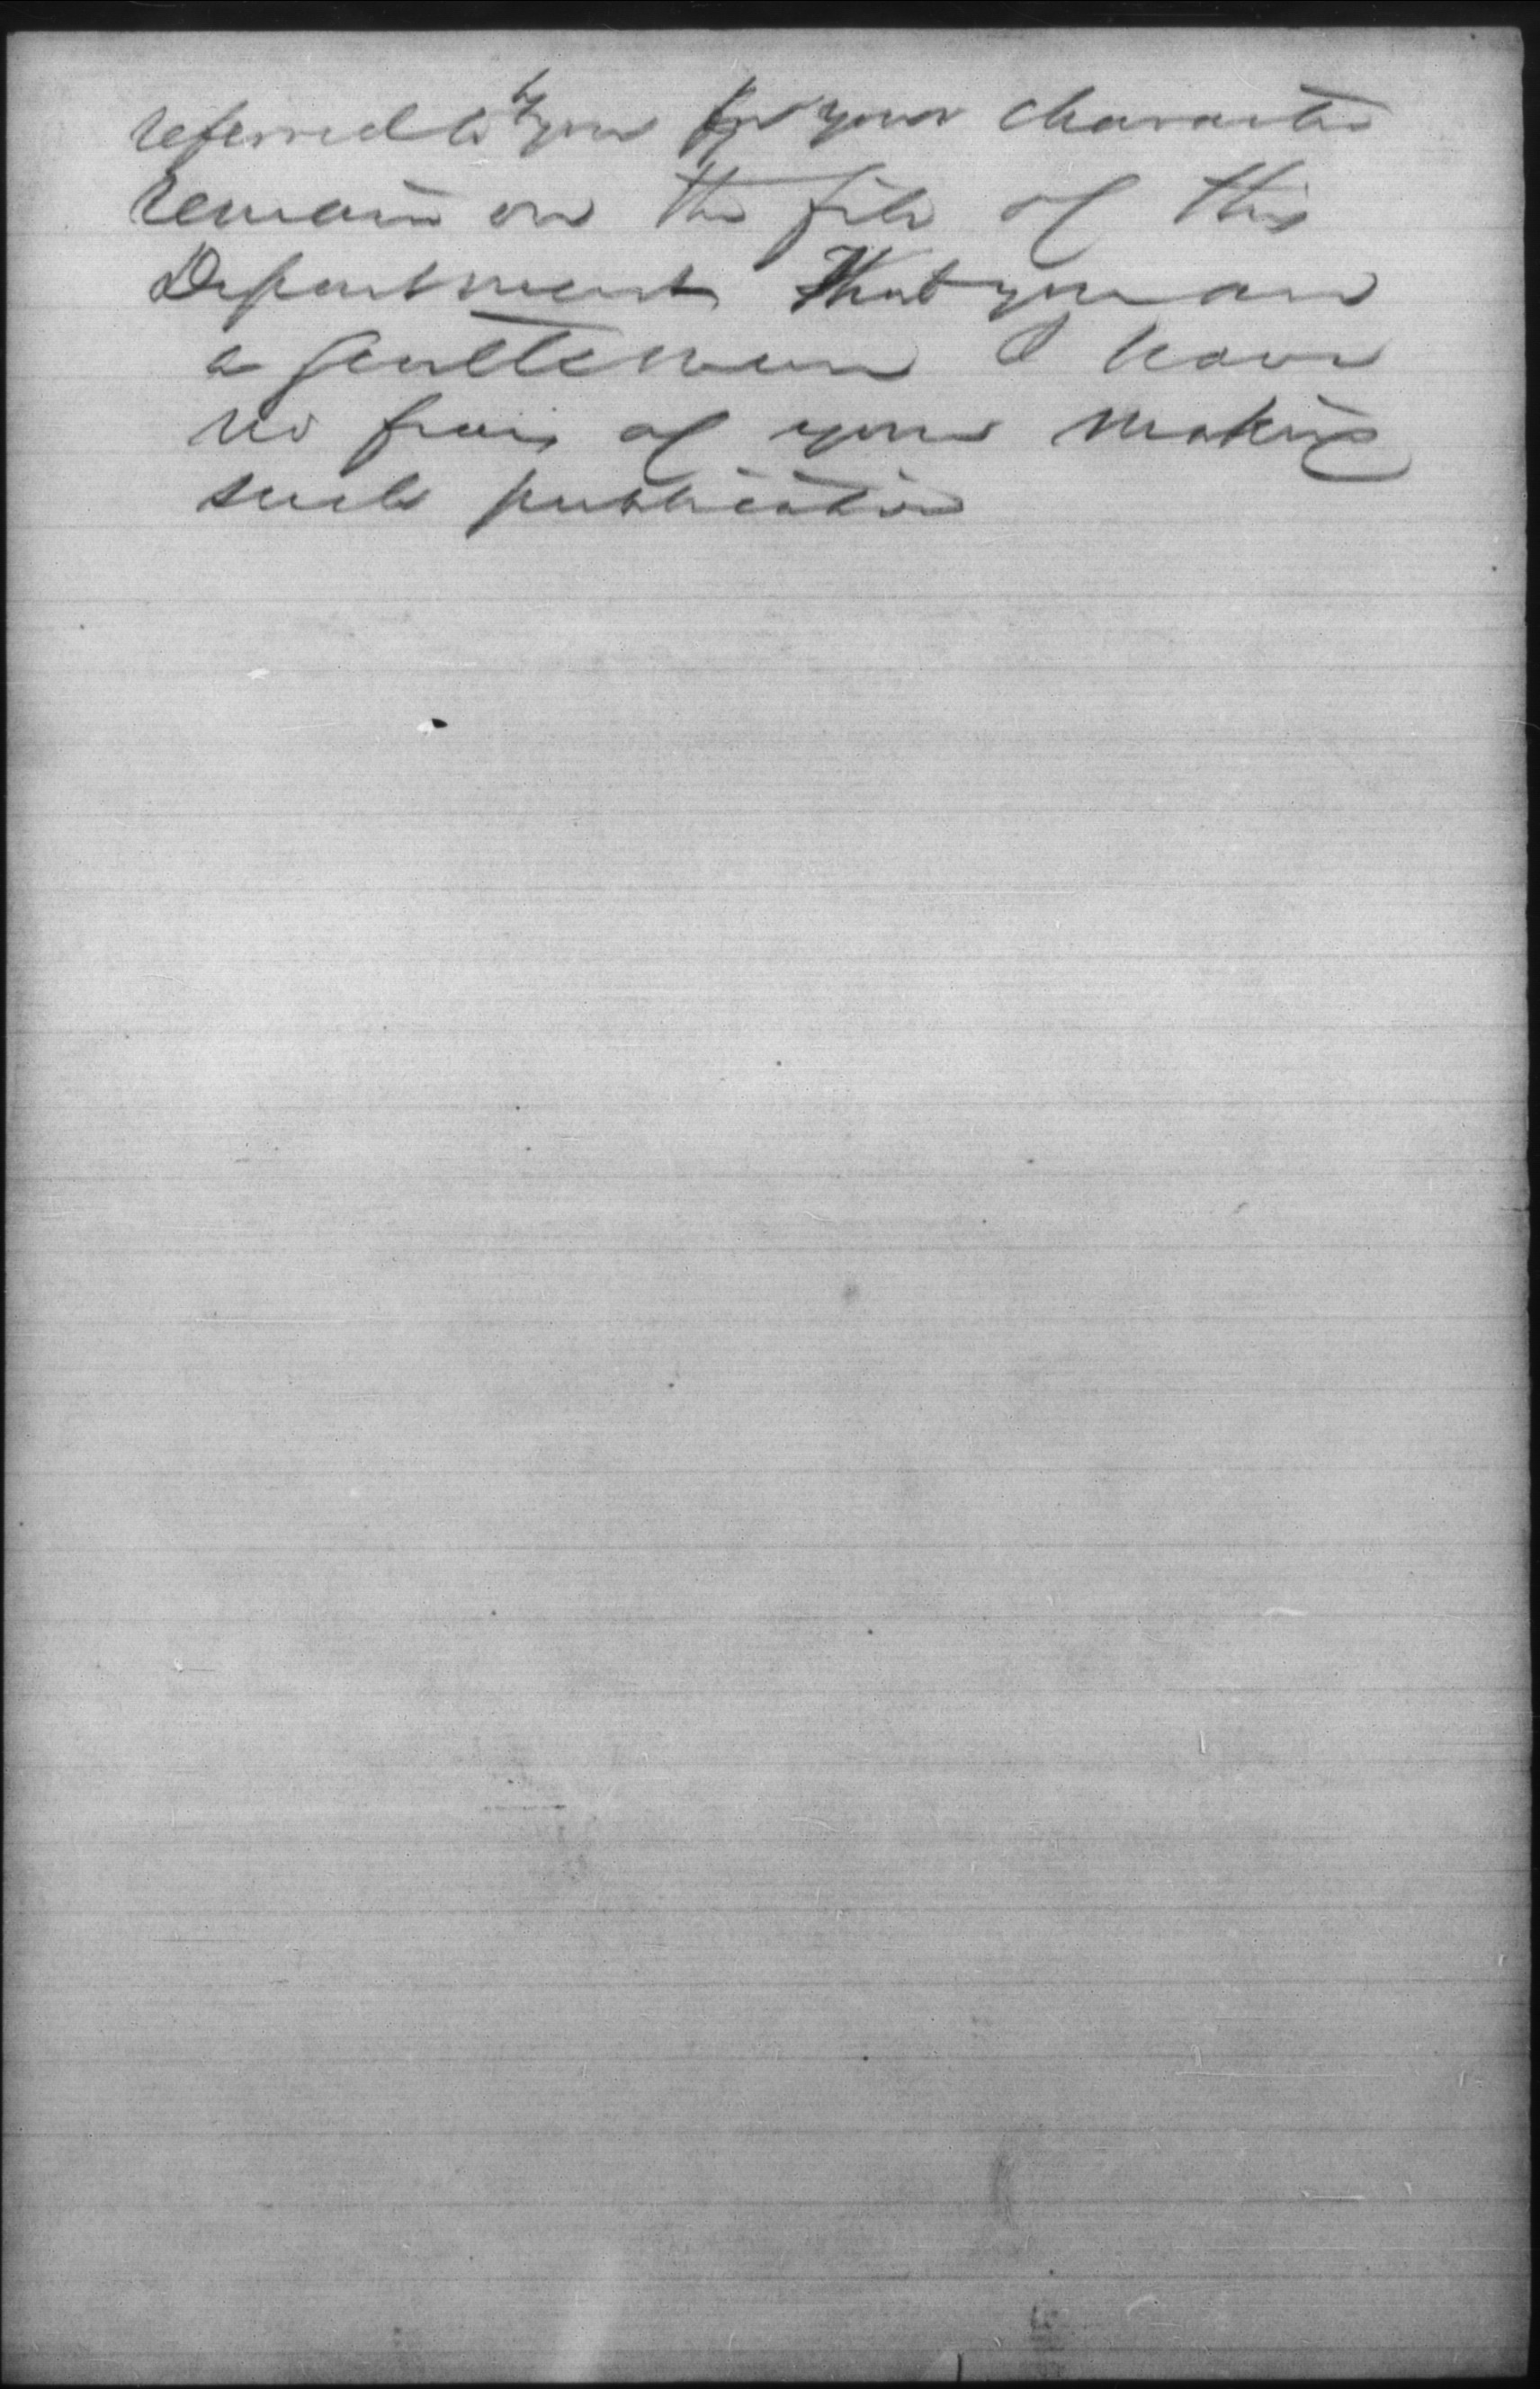 referred to by you for your character
remain on the file of this
Department That you are
a gentleman I have
no fears of your making
such publication